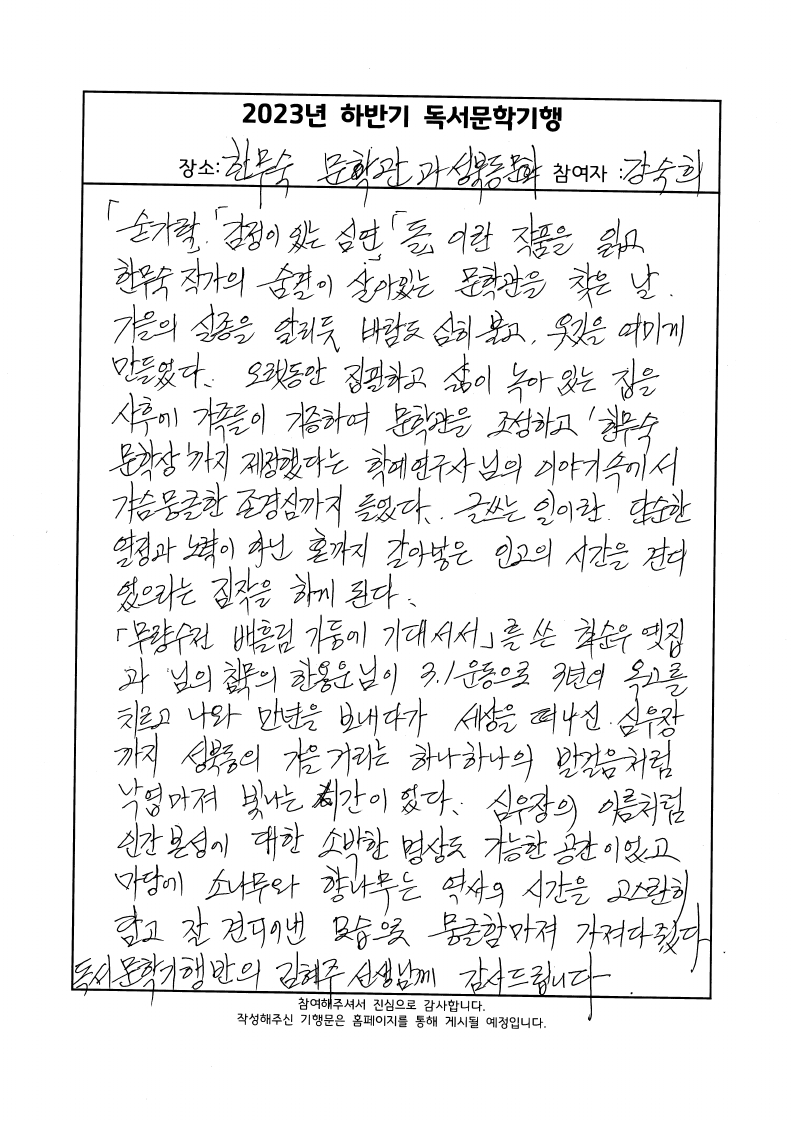 2023년 하반기 독서문학기행
장소: 한무숙 문학관과 성북동문학 참여자 : 강숙희
「손가락」「감정이 있는 심연」「돌」이란 작품을 읽고
한무숙 작가의 숨결이 살아있는 문학관을 찾은 날.
가을의 실종을 알리듯 바람도 심히 불고, 옷깃을 여미게
만들었다. 오랫동안 집필하고 삶이 녹아 있는 집을
사후에 가족들이 기증하여 문학관을 조성하고 '한무숙
문학상'까지 제정했다는 학예연구사님의 이야기속에서
가슴뭉클한 존경심까지 들었다. 글쓰는 일이란. 단순한
열정과 노력이 아닌 혼까지 갈아넣은 인고의 시간을 견디
었으리라는 짐작을 하게 된다.
「무량수전 배흘림 기둥에 기대서서」를 쓴 최순우 옛집
과 님의 침묵의 한용운님이 3.1운동으로 3년의 옥고를
치르고 나와 만년을 보내다가 세상을 떠나신 심우장
까지 성북동의 가을 거리는 하나하나의 발걸음처럼
낙엽마져 빛나는 시간이 었다. 심우장의 이름처럼
인간본성에 대한 소박한 명상도 가능한 공간이었고
마당에 소나무와 향나무는 역사의 시간을 고스란히
함고 잘 견디어낸 모습으로 뭉클함마져 가져다줬다
독서문학기행반의 김혜주 선생님께 감사드립니다
참여해주셔서 진심으로 감사합니다.
작성해주신 기행문은 홈페이지를 통해 게시될 예정입니다.